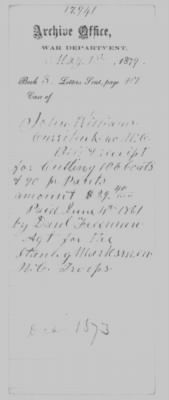 12941
Archive Office,
WAR DEPARTMENT,
May 1st, 1879.
Book 3. Letters Sent, page
Case of
John Williams
Currituck co N.C.
receipt
for Cutting 106 coats
& 90 pr Pants
amount $ 29. 40/100
Paid June 4th 1861
by Danl Freeman
Agt for the
Stanly Marksmen
N.C. Troops
1873